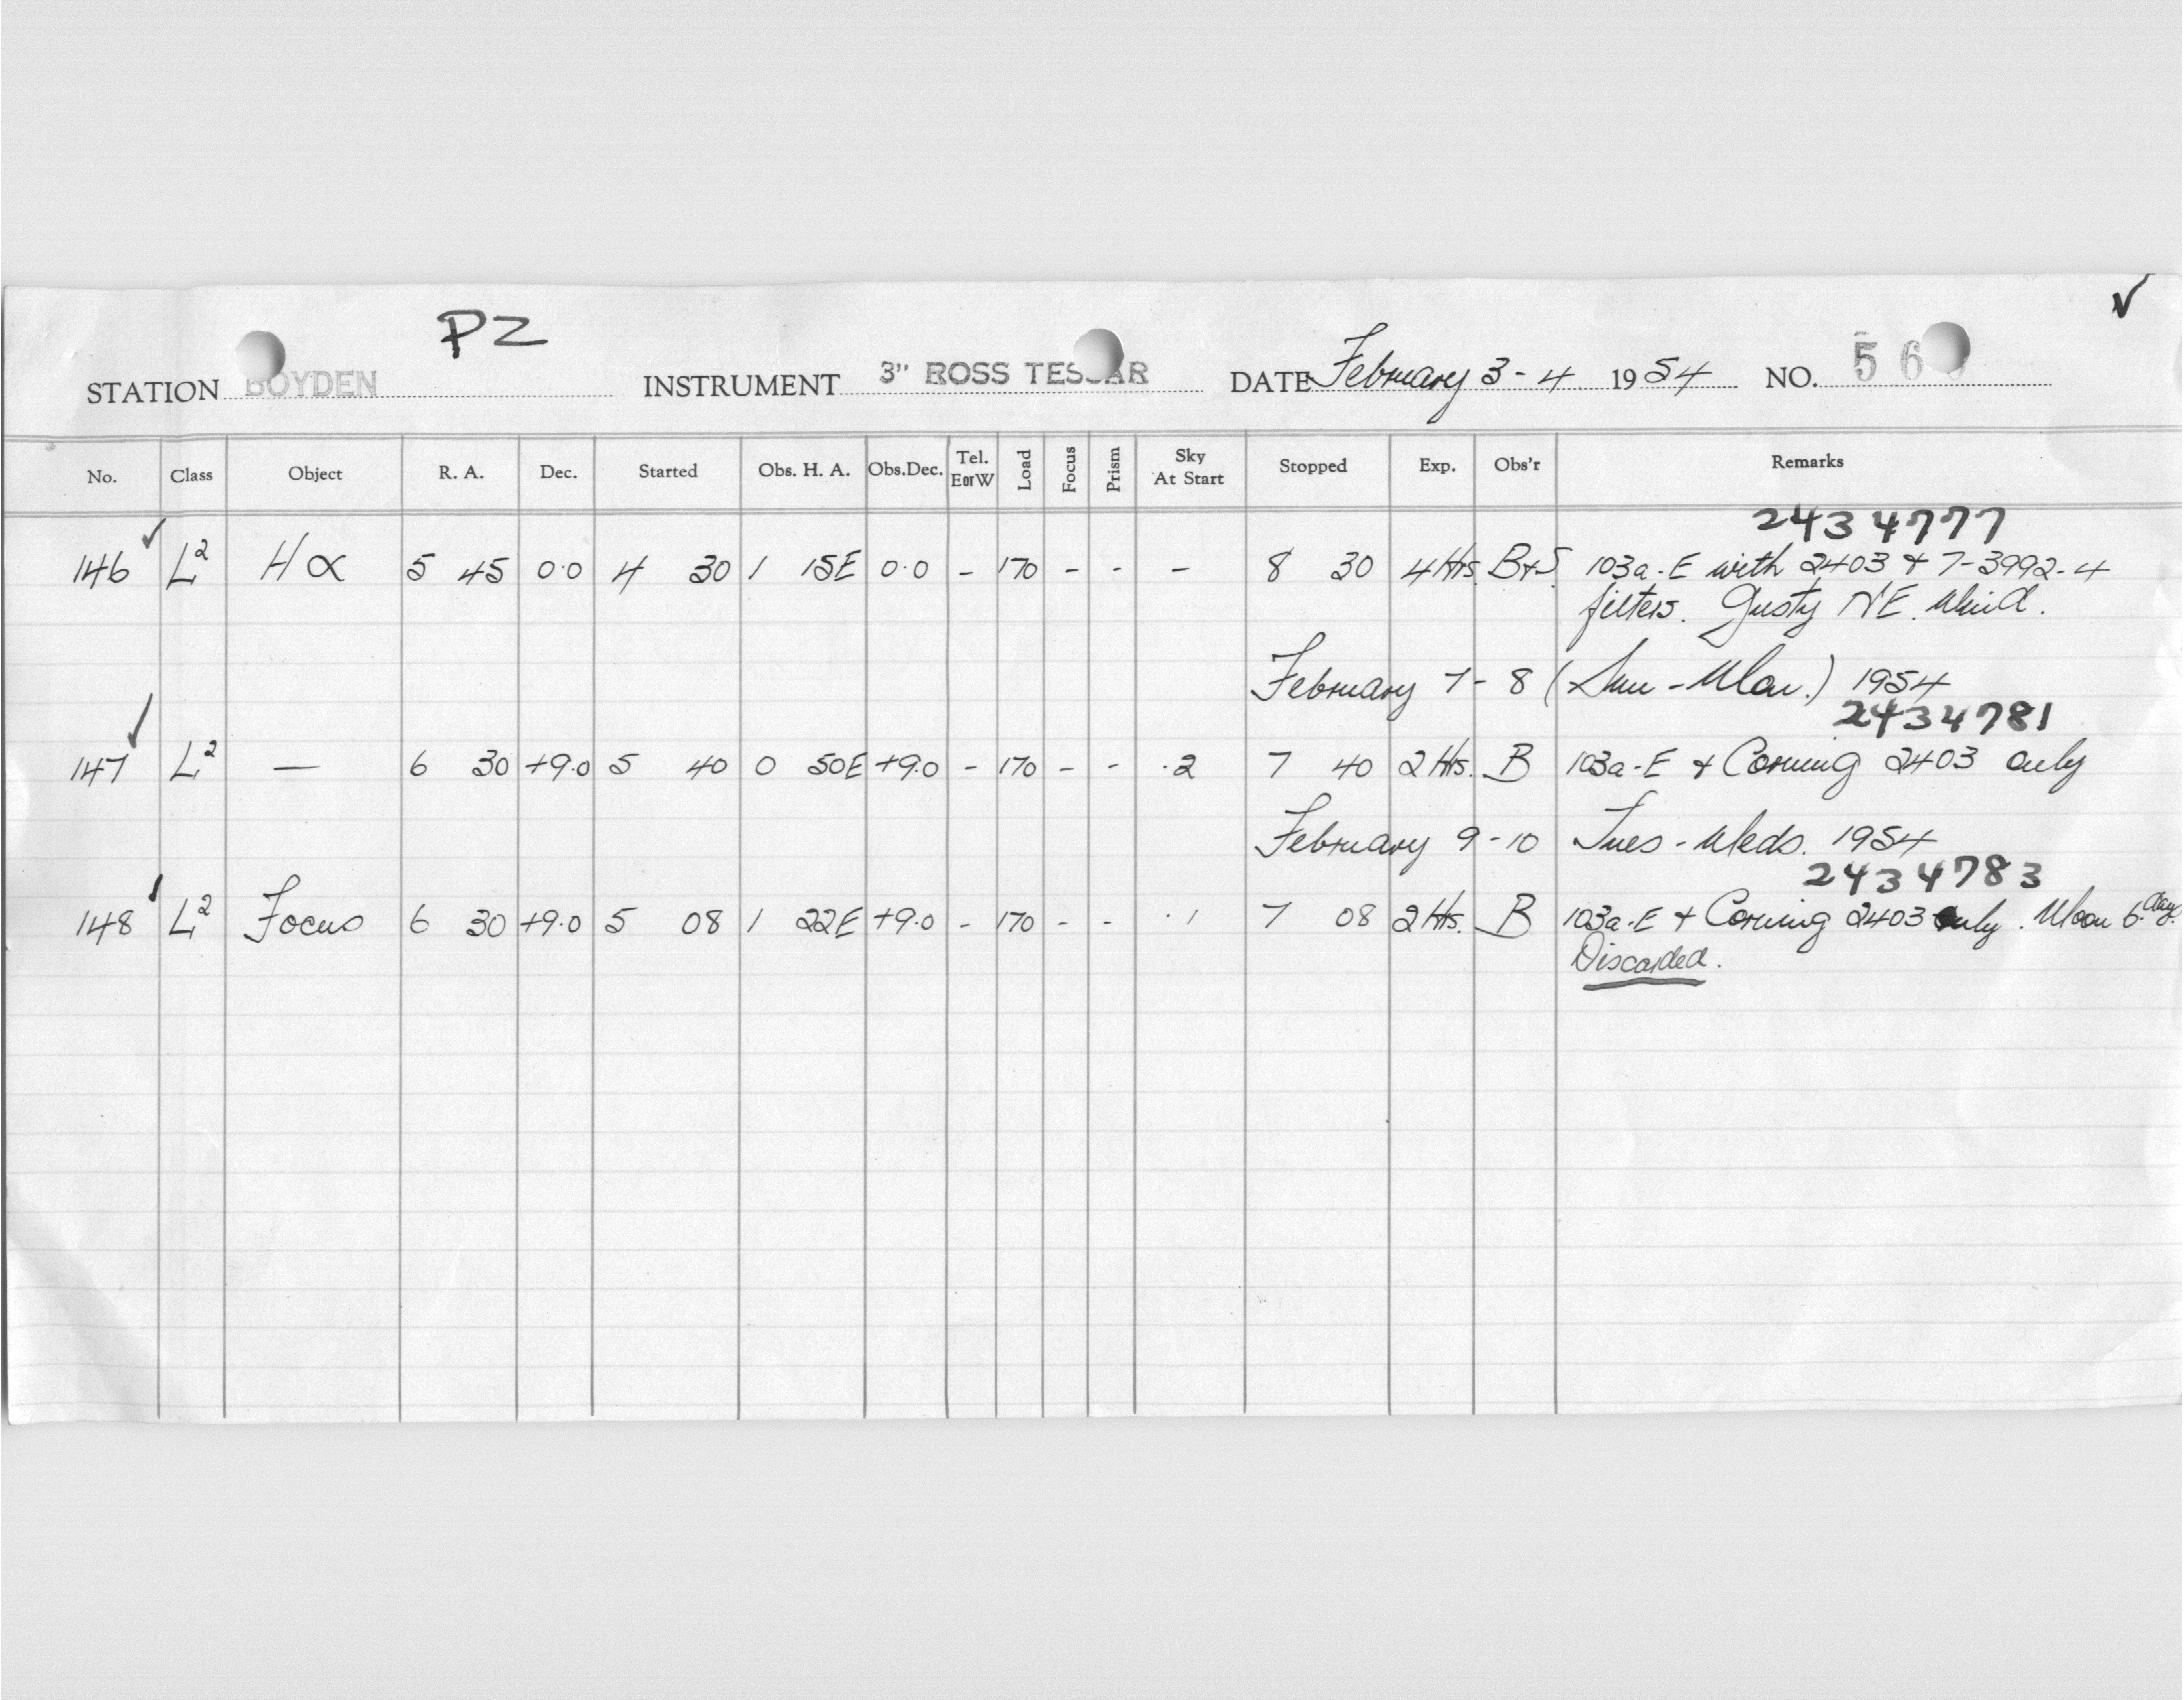 PZ
STATION BOYDEN INSTRUMENT 3" ROSS TESSAR DATE February 3-4 1954 NO. 56
No. Class Object R. A. Dec. Started Obs. H. A. Obs.Dec. Tel. E or W Load Focus Prism Sky At Start Stopped Exp. Obs'r Remarks
2434777
146 L² Hα 5 45 0·0 4 30 1 15E 0·0 - 170 - - - 8 30 4 Hrs. B+S 103a-E with 2403 & 7-3992-4
filters. Gusty NE. Wind.
February 7-8 (Sun - Mon.) 1954
2434781
147 L² — 6 30 +9·0 5 40 0 50E +9·0 - 170 - - ·2 7 40 2 Hrs. B 103a-E & Corning 2403 only
February 9-10 Tues - Weds. 1954
2434783
148 L² Focus 6 30 +9·0 5 08 1 22E +9·0 - 170 - - ·1 7 08 2 Hrs. B 103a-E & Corning 2403 only. Moon 6 day.
Discarded.